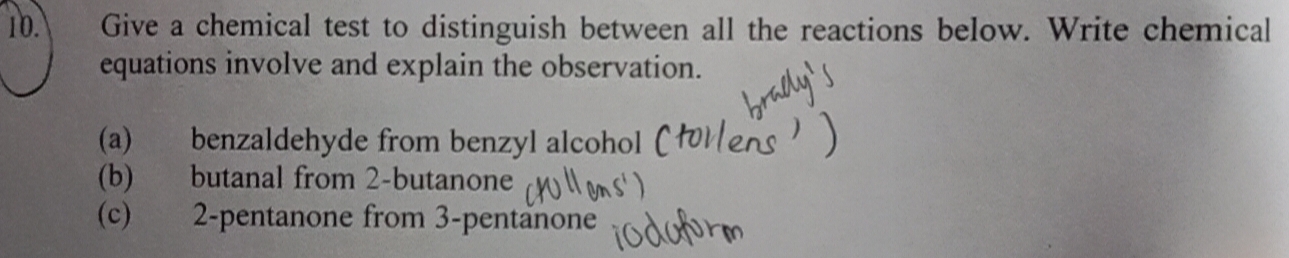 10. Give a chemical test to distinguish between all the reactions below. Write chemical
equations involve and explain the observation.
brady's
(a) benzaldehyde from benzyl alcohol (tollens')
(b) butanal from 2-butanone (tollens')
(c) 2-pentanone from 3-pentanone iodoform